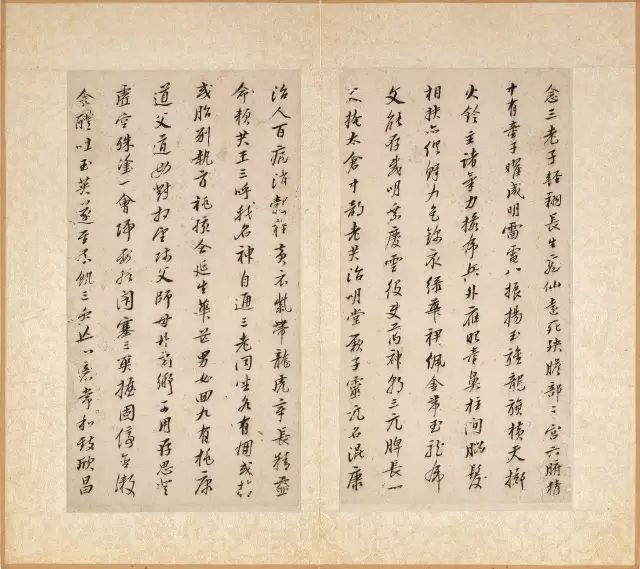 念三老子輕翔長生高仙遠死殃膽部之宮六腑精
中有童子曜威明雷電八振揚玉旌龍旂橫天擲
火鈴主諸氣力攝虎兵外應眼童鼻柱間腦髮
相扶亦俱鮮九色錦衣綠華裙佩金帶玉龍虎
文能存威明乘慶雲役使萬神朝三元脾長一
尺掩太倉中部老君治明堂厥字靈元名混康
治人百病消穀糧黃衣紫帶龍虎章長精益
命賴君王三呼我名神自通三老同坐各有朋或精
或胎別執方桃孩合延生華芒男女回九有桃康
道父道母對相望師父師母丹玄鄉可用存思登
虛空殊塗一會歸要終閉塞三關握固停含漱
金醴吞玉英遂至不飢三蟲亡心意常和致欣昌